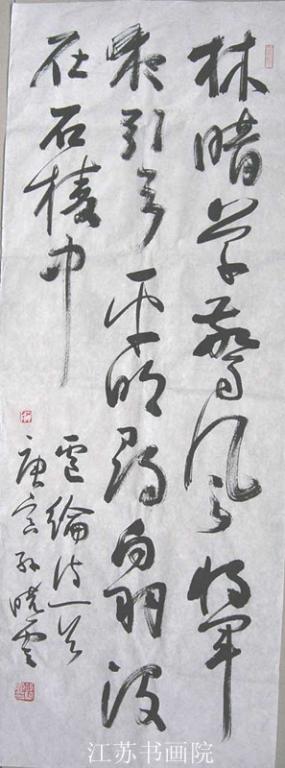 林暗草惊风将军
夜引弓平明寻白羽没
在石棱中
卢纶诗一首
庚寅孙晓云
江苏书画院